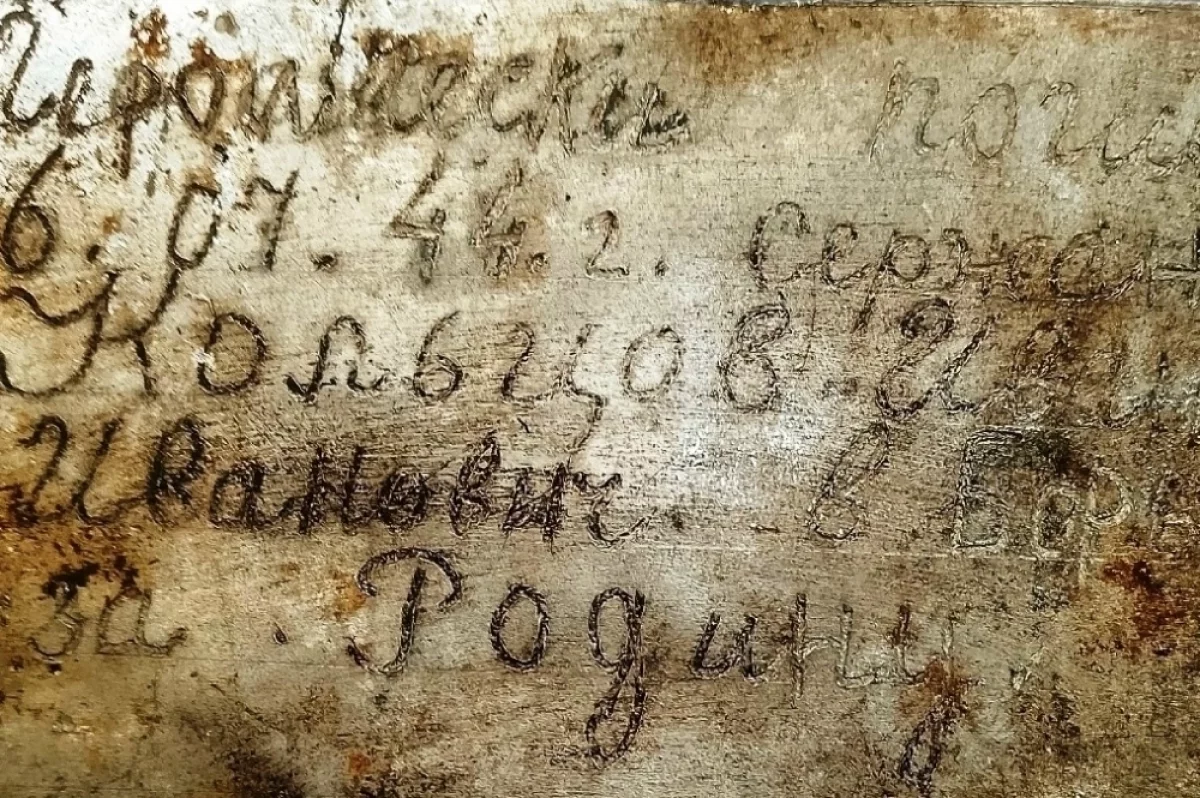 Героически поги
6.07.44.г. Сержан
Кольцов Ива
Иванович. в Борь
за Родину.